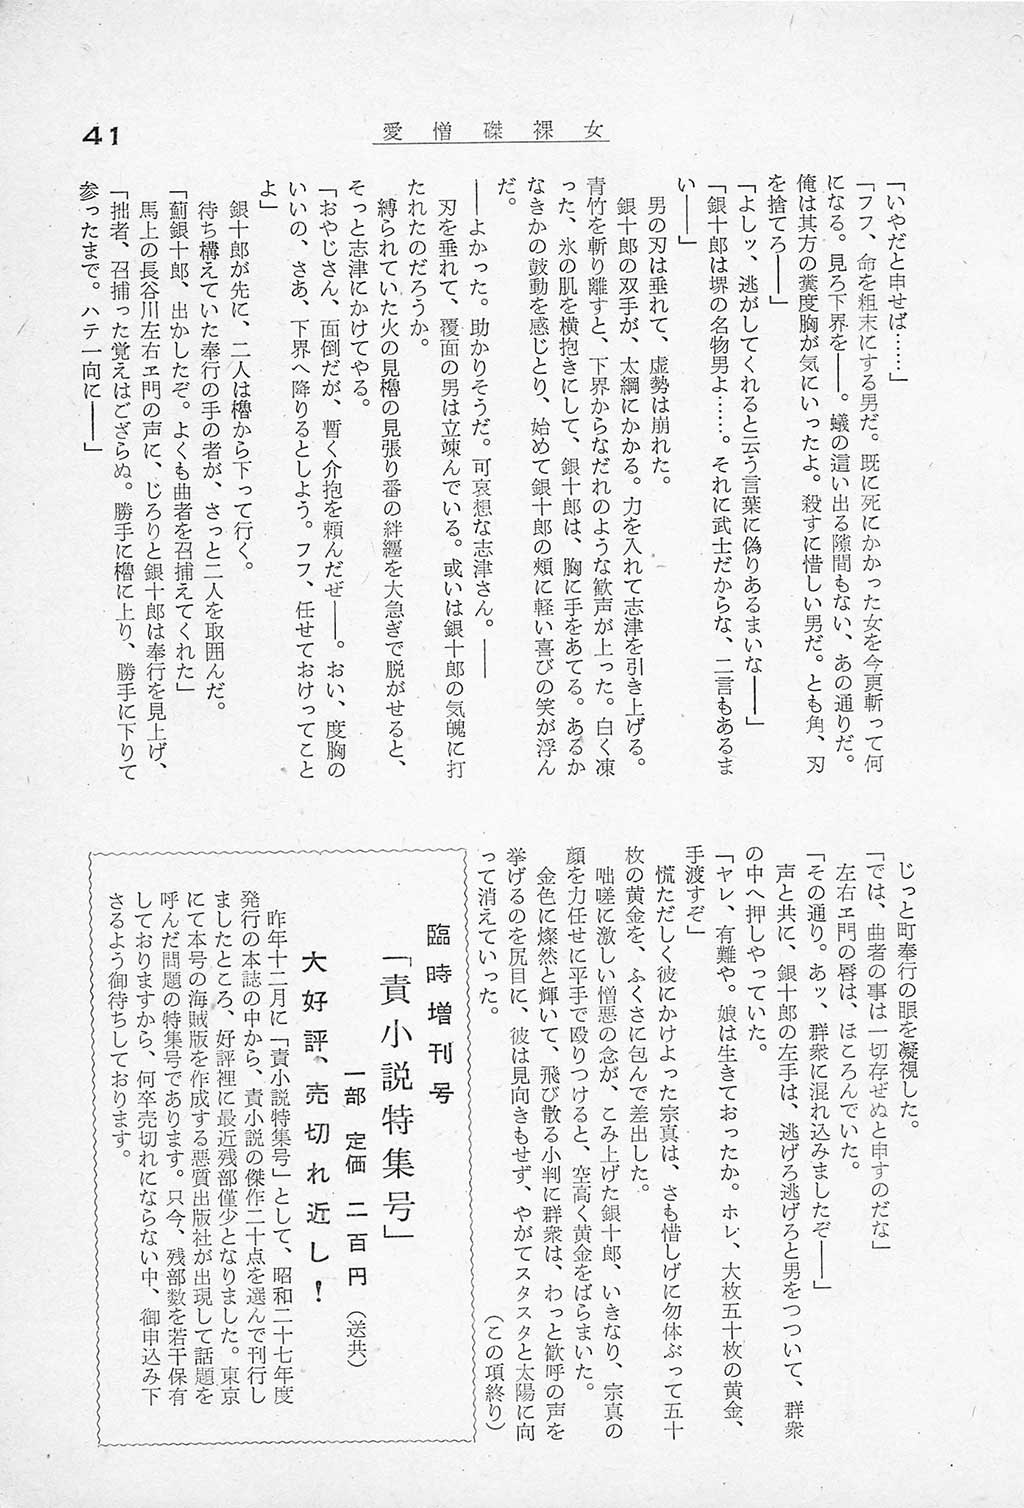 愛憎磔裸女
41
「いやだと申せば……」
「フフ、命を粗末にする男だ。既に死にかかった女を今更斬って何
になる。見ろ下界を――。蟻の這い出る隙間もない、あの通りだ。
俺は其方の糞度胸が気にいったよ。殺すに惜しい男だ。とも角、刃
を捨てろ――」
「よしッ、逃がしてくれると云う言葉に偽りあるまいな――」
「銀十郎は堺の名物男よ……。それに武士だからな、二言もあるま
い――」
男の刃は垂れて、虚勢は崩れた。
銀十郎の双手が、太綱にかかる。力を入れて志津を引き上げる。
青竹を斬り離すと、下界からなだれのような歓声が上った。白く凍
った、氷の肌を横抱きにして、銀十郎は、胸に手をあてる。あるか
なきかの鼓動を感じとり、始めて銀十郎の頬に軽い喜びの笑が浮ん
だ。
――よかった。助かりそうだ。可哀想な志津さん。――
刃を垂れて、覆面の男は立竦んでいる。或いは銀十郎の気魄に打
たれたのだろうか。
縛られていた火の見櫓の見張り番の絆纒を大急ぎで脱がせると、
そっと志津にかけてやる。
「おやじさん、面倒だが、暫く介抱を頼んだぜ――。おい、度胸の
いいの、さあ、下界へ降りるとしよう。フフ、任せておけってこと
よ」
銀十郎が先に、二人は櫓から下って行く。
待ち構えていた奉行の手の者が、さっと二人を取囲んだ。
「薊銀十郎、出かしたぞ。よくも曲者を召捕えてくれた」
馬上の長谷川左右ヱ門の声に、じろりと銀十郎は奉行を見上げ、
「拙者、召捕った覚えはござらぬ。勝手に櫓に上り、勝手に下りて
参ったまで。ハテ一向に――」
じっと町奉行の眼を凝視した。
「では、曲者の事は一切存ぜぬと申すのだな」
左右ヱ門の唇は、ほころんでいた。
「その通り。あッ、群衆に混れ込みましたぞ――」
声と共に、銀十郎の左手は、逃げろ逃げろと男をつついて、群衆
の中へ押しやっていた。
「ヤレ、有難や。娘は生きておったか。ホレ、大枚五十枚の黄金、
手渡すぞ」
慌ただしく彼にかけよった宗真は、さも惜しげに勿体ぶって五十
枚の黄金を、ふくさに包んで差出した。
咄嗟に激しい憎悪の念が、こみ上げた銀十郎、いきなり、宗真の
顔を力任せに平手で殴りつけると、空高く黄金をばらまいた。
金色に燦然と輝いて、飛び散る小判に群衆は、わっと歓呼の声を
挙げるのを尻目に、彼は見向きもせず、やがてスタスタと太陽に向
って消えていった。
（この項終り）
臨時増刊号
「責小説特集号」
一部 定価 二百円（送共）
大好評、売切れ近し！
昨年十二月に「責小説特集号」として、昭和二十七年度
発行の本誌の中から、責小説の傑作二十点を選んで刊行し
ましたところ、好評裡に最近残部僅少となりました。東京
にて本号の海賊版を作成する悪質出版社が出現して話題を
呼んだ問題の特集号であります。只今、残部数を若干保有
しておりますから、何卒売切れにならない中、御申込み下
さるよう御待ちしております。